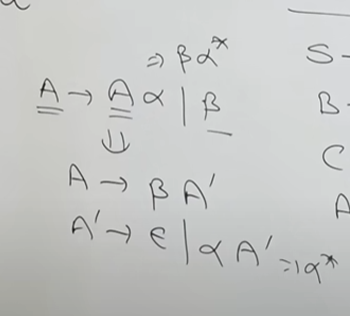 ⇒ βα*
A → Aα | β
⇓
A → βA'
A' → ϵ | αA' ⇒ α*
S -
B -
C
A